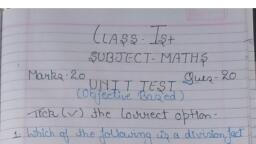 CLASS - Ist
SUBJECT - MATHS
Marks - 20 Ques - 20
UNIT TEST
(Objective Based)
Tick (✓) the correct option -
1. Which of the following is a division fact